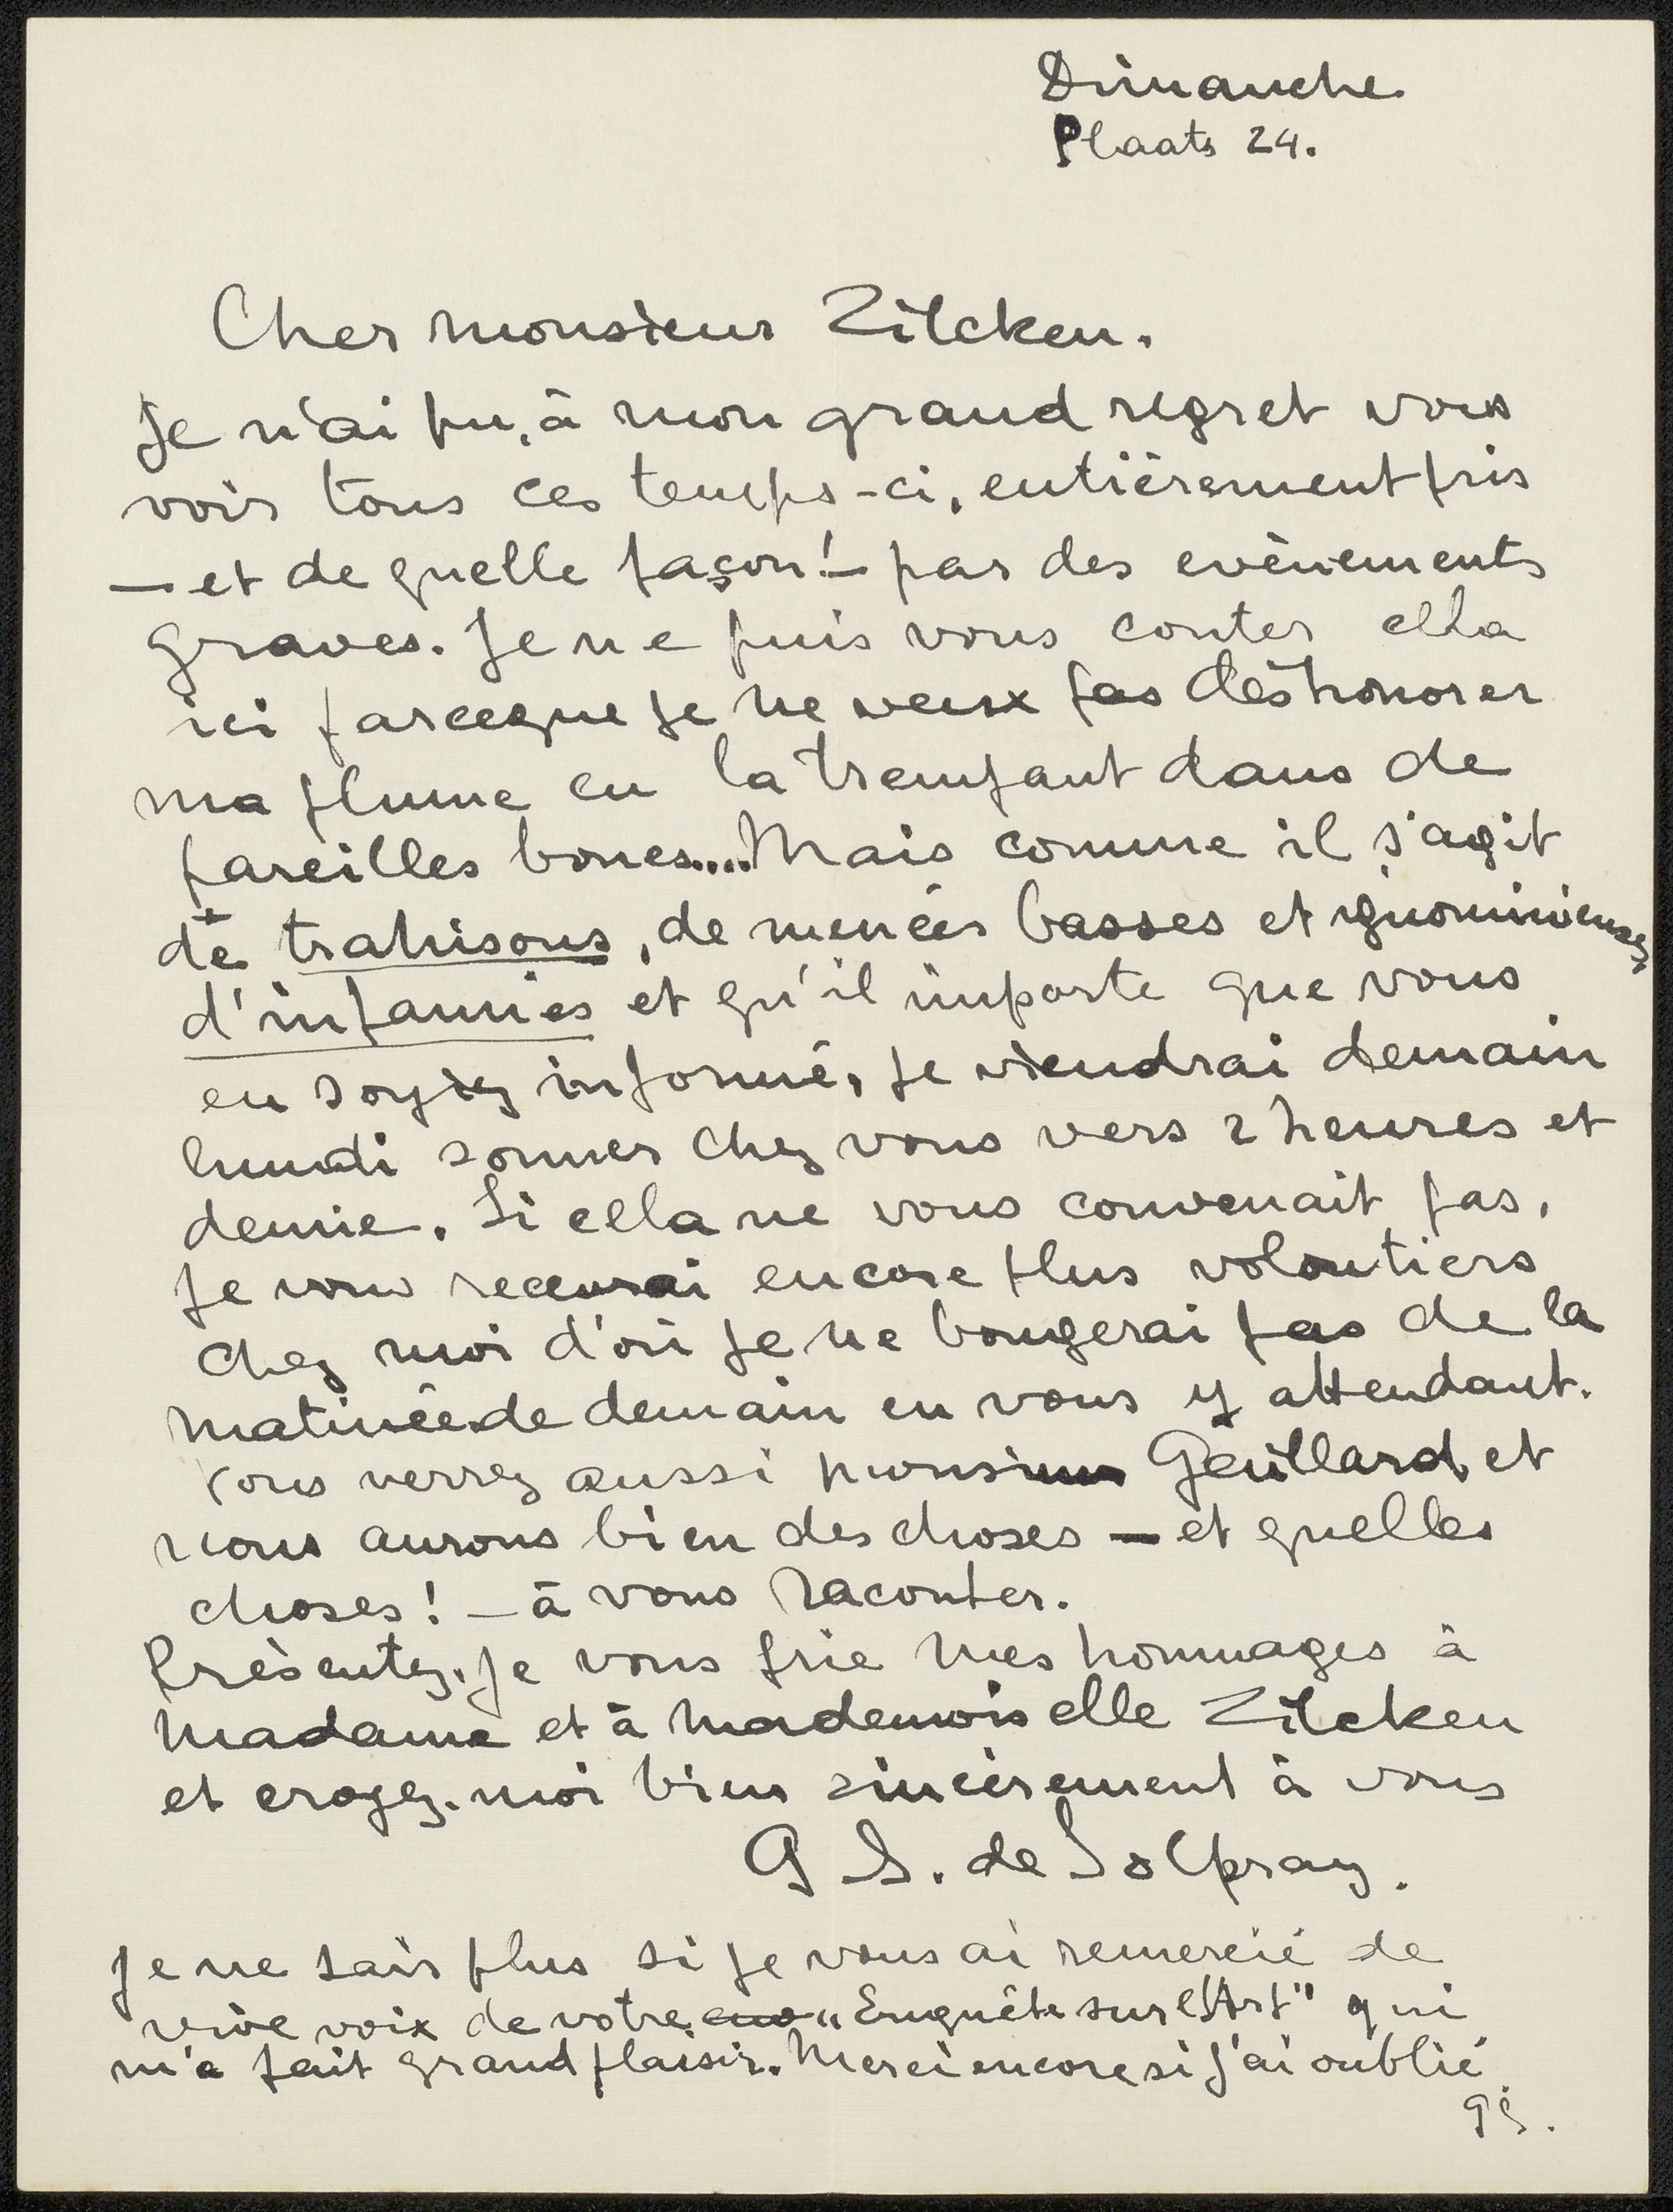 Dimanche.
Plaats 24.
Cher monsieur Zilcken.
Je n'ai pu, à mon grand regret vous
voir tous ces temps-ci, entièrement pris
— et de quelle façon! — par des evènements
graves. Je ne puis vous conter cella
ici parceque je ne veux pas deshonorer
ma plume en la trempant dans de
pareilles boues.... Mais comme il s'agit
de trahisons, de menées basses et ignominieuses,
d'infamies et qu'il importe que vous
en soyiez informé, je viendrai demain
lundi sonner chez vous vers 2 heures et
demie. Si cella ne vous convenait pas,
je vous recevrai encore plus volontiers
chez moi d'où je ne bougerai pas de la
matinée de demain en vous y attendant.
Vous verrez aussi monsieur Gaillard et
nous aurons bien des choses — et quelles
choses! — à vous raconter.
Présentez, je vous prie mes hommages à
Madame et à Mademoiselle Zilcken
et croyez-moi bien sincèrement à vous
G S. de Solpray.
Je ne sais plus si je vous ai remercié de
vive voix de votre „Enquête sur l'Art" qui
m'a fait grand plaisir. Merci encore si j'ai oublié.
GS.